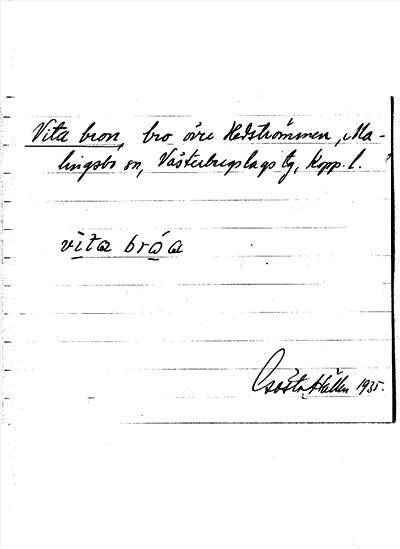 Vita bron, bro övre Hedströmmen, Ma-
lingsbo sn, Västerbergslags tg, Kopp. l.
vita bróa
Gösta Hallén 1935.